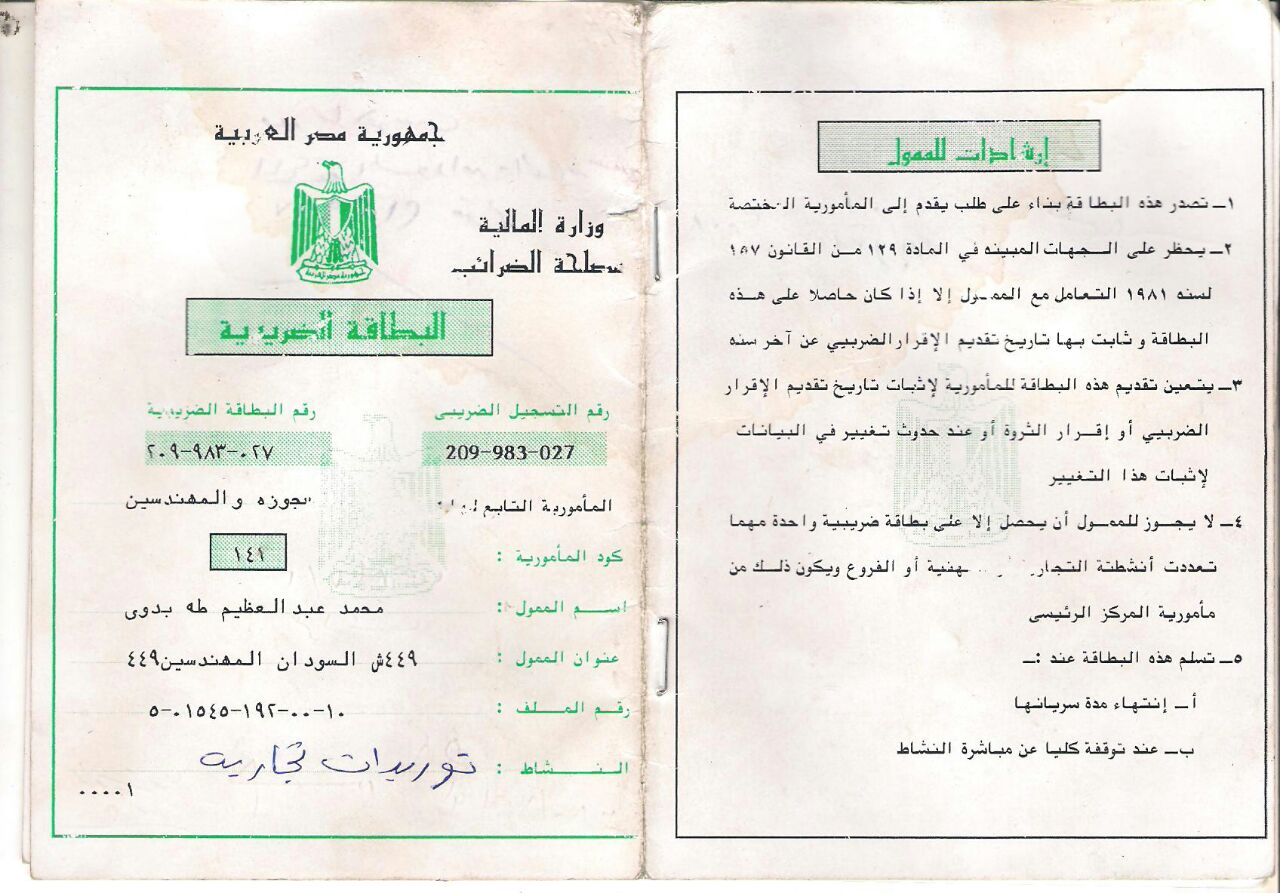 جمهورية مصر العربية
وزارة المالية
مصلحة الضرائب
البطاقة الضريبية
رقم التسجيل الضريبى رقم البطاقة الضريبية
209-983-027 ٢٠٩-٩٨٣-٠٢٧
المأمورية التابع لها : والمهندسين
كود المأمورية : ١٤١
اسم الممول : محمد عبدالعظيم طه بدوى
عنوان الممول : ٤٤٩ش السودان المهندسين٤٤٩
رقم الملف : ٥-٠١٥٤٥-١٩٢-٠٠-١٠
النشاط : توريدات تجاريه
٠٠٠٠١
إرشادات للممول
١ـ تصدر هذه البطاقة بناء على طلب يقدم إلى المأمورية المختصة
٢ـ يحظر على الجهات المبينه في المادة ١٢٩ من القانون ١٥٧
لسنه ١٩٨١ التعامل مع الممول إلا إذا كان حاصلا على هذه
البطاقة و ثابت بها تاريخ تقديم الإقرار الضريبي عن آخر سنه
٣ـ يتعين تقديم هذه البطاقة للمأمورية لإثبات تاريخ تقديم الإقرار
الضريبي أو إقرار الثروة أو عند حدوث تغيير في البيانات
لإثبات هذا التغيير
٤ـ لا يجوز للممول أن يحصل إلا على بطاقة ضريبية واحدة مهما
تعددت أنشطته أو الفروع ويكون ذلك من
مأمورية المركز الرئيسى
٥ـ تسلم هذه البطاقة عند :ـ
أ ـ إنتهاء مدة سريانها
ب ـ عند توقفة كليا عن مباشرة النشاط